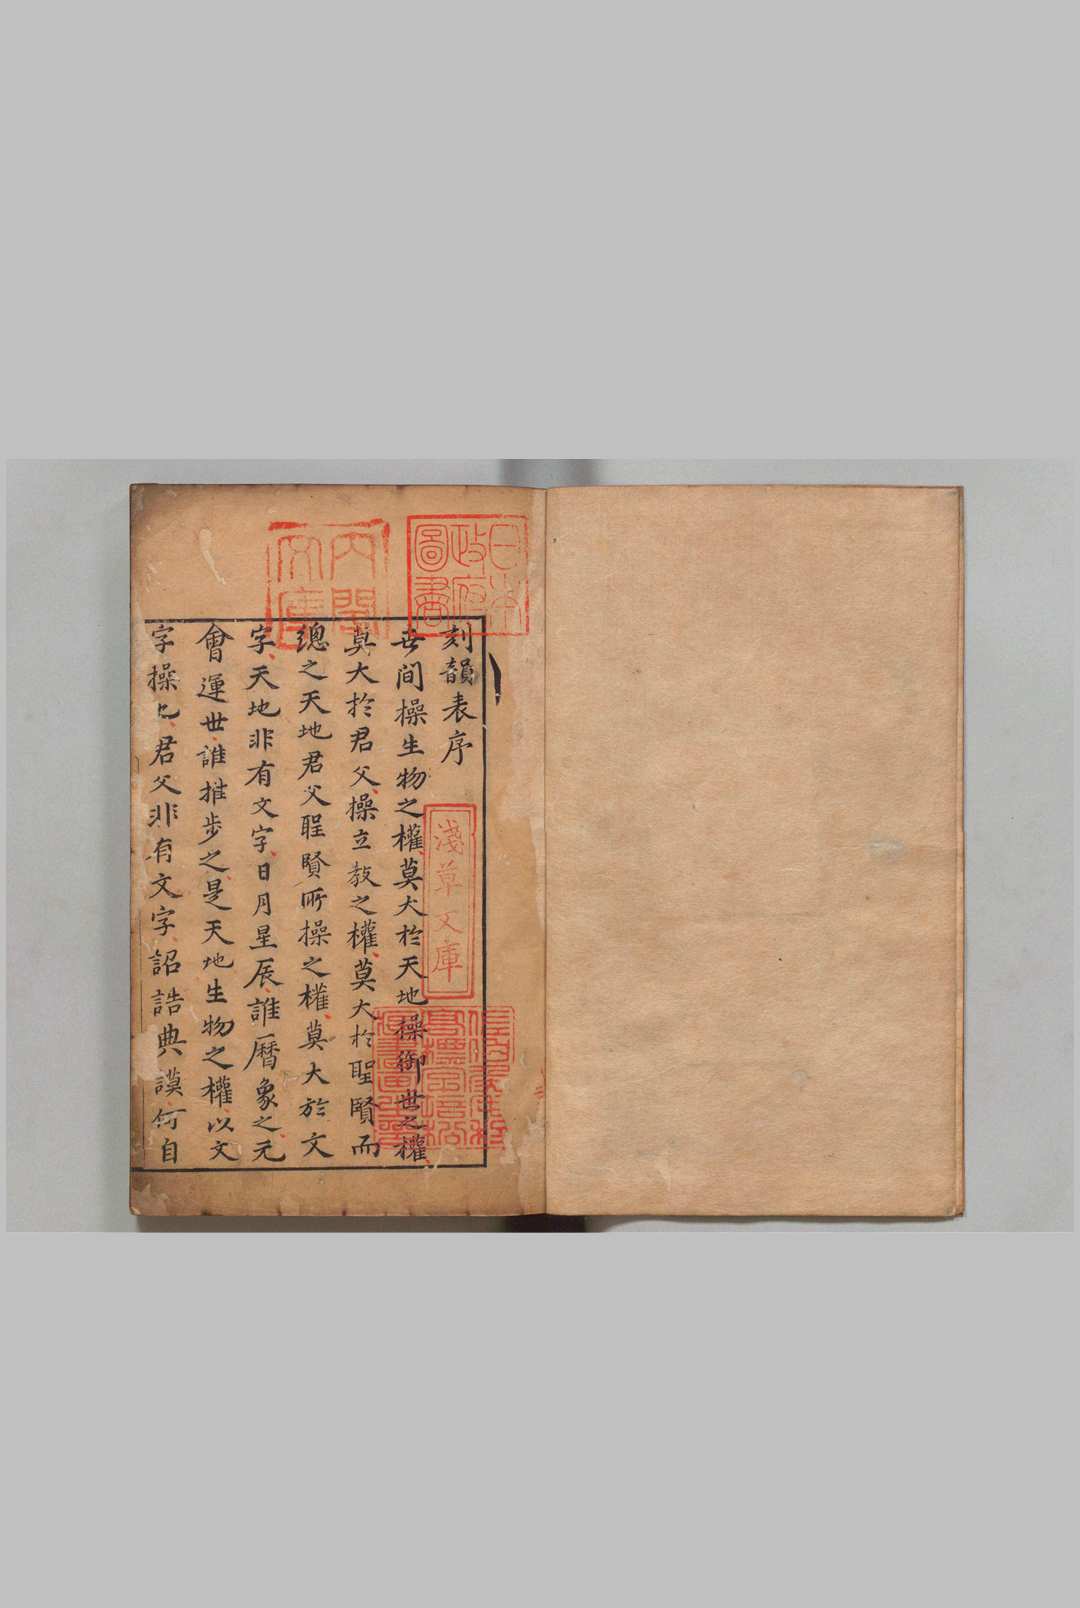 刻韻表序
世間操生物之權莫大於天地操御世之權
莫大於君父操立教之權莫大於聖賢而
總之天地君父聖賢所操之權莫大於文
字天地非有文字日月星辰誰曆象之元
會運世誰推步之是天地生物之權以文
字操也君父非有文字詔誥典謨何自
日本
政府
圖書
內閣
文庫
淺草文庫